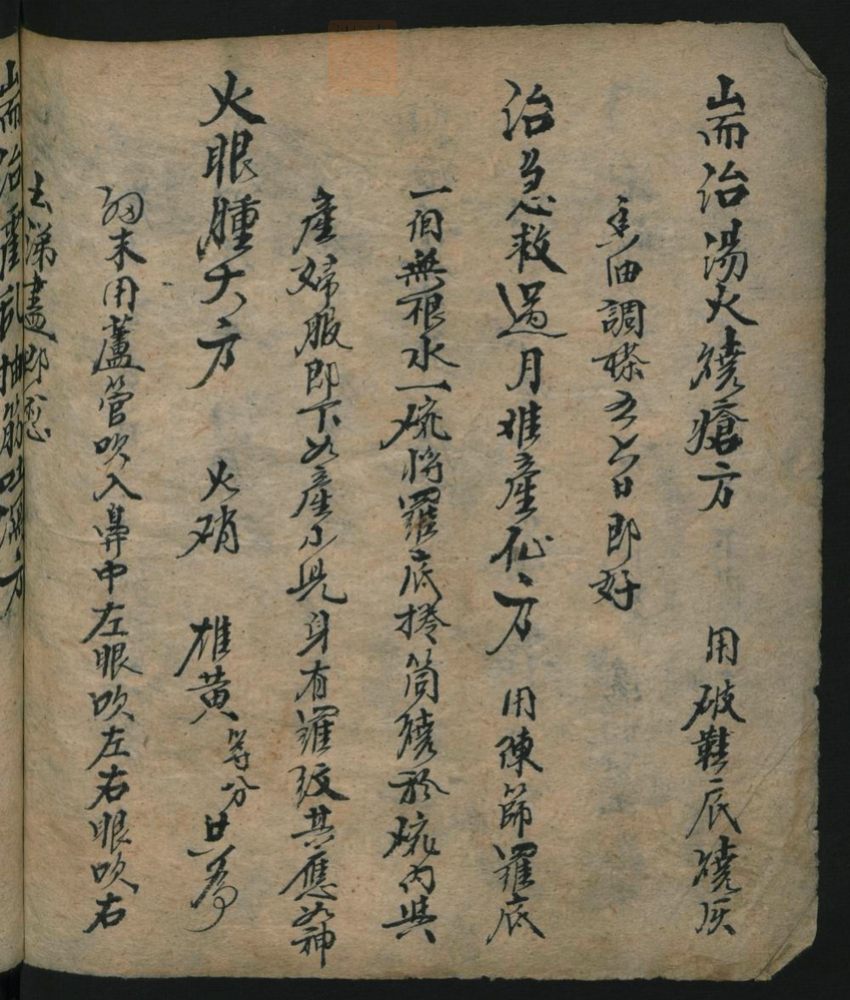 耑治湯火燒瘡方 用破鞋底燒灰
香油調搽五六日即好
治急救過月难產仙方 用陳篩羅底
一個無根水一碗將羅底捲筒燒於碗內與
產婦服即下如產小児身有羅紋其應如神
火眼腫大方 火硝 雄黃 等分 共為
細末用蘆管吹入鼻中左眼吹左右眼吹右
去涕盡即愈
耑治霍乱抽筋吐瀉方